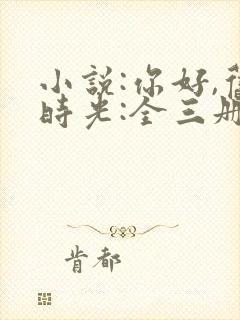 小說:你好,舊
時光:全三册
肯都